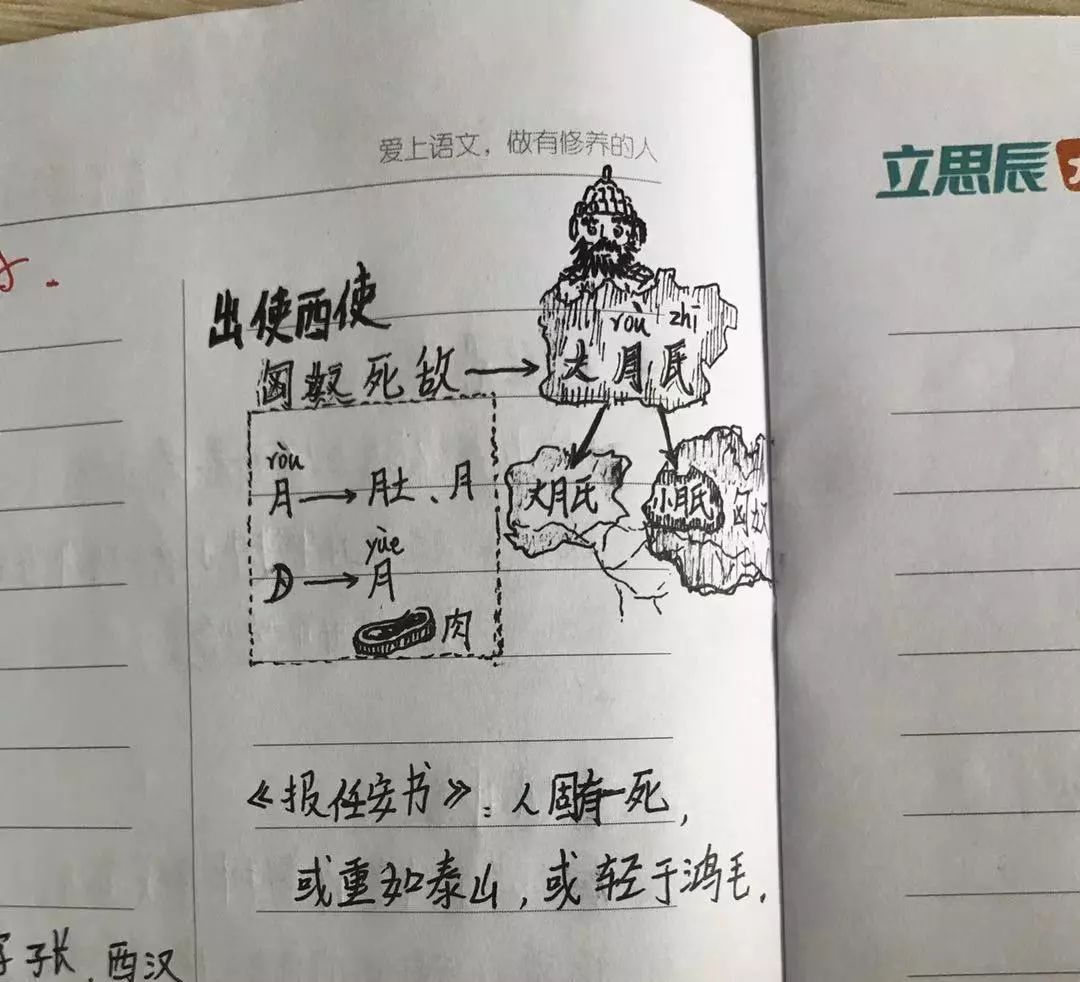 爱上语文，做有修养的人
立思辰
出使西使
匈奴死敌
ròu zhī
大月氏
大月氏
小月氏
匈奴
ròu
月→肚、月
yùe
→月
肉
《报任安书》：人固有一死，
或重如泰山，或轻于鸿毛.
字子长，西汉